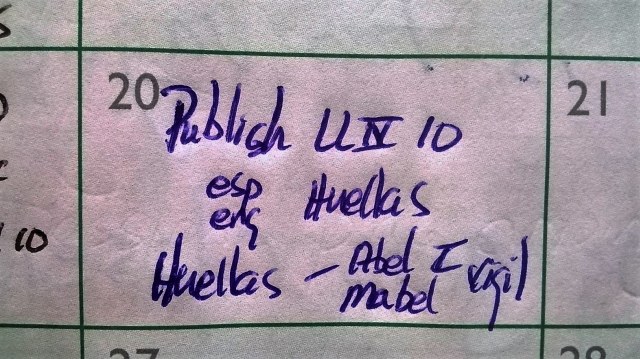 20
21
Publish LLIV 10
esp
eng Huellas
Huellas - Abel I Vigil
Mabel
10
27
28